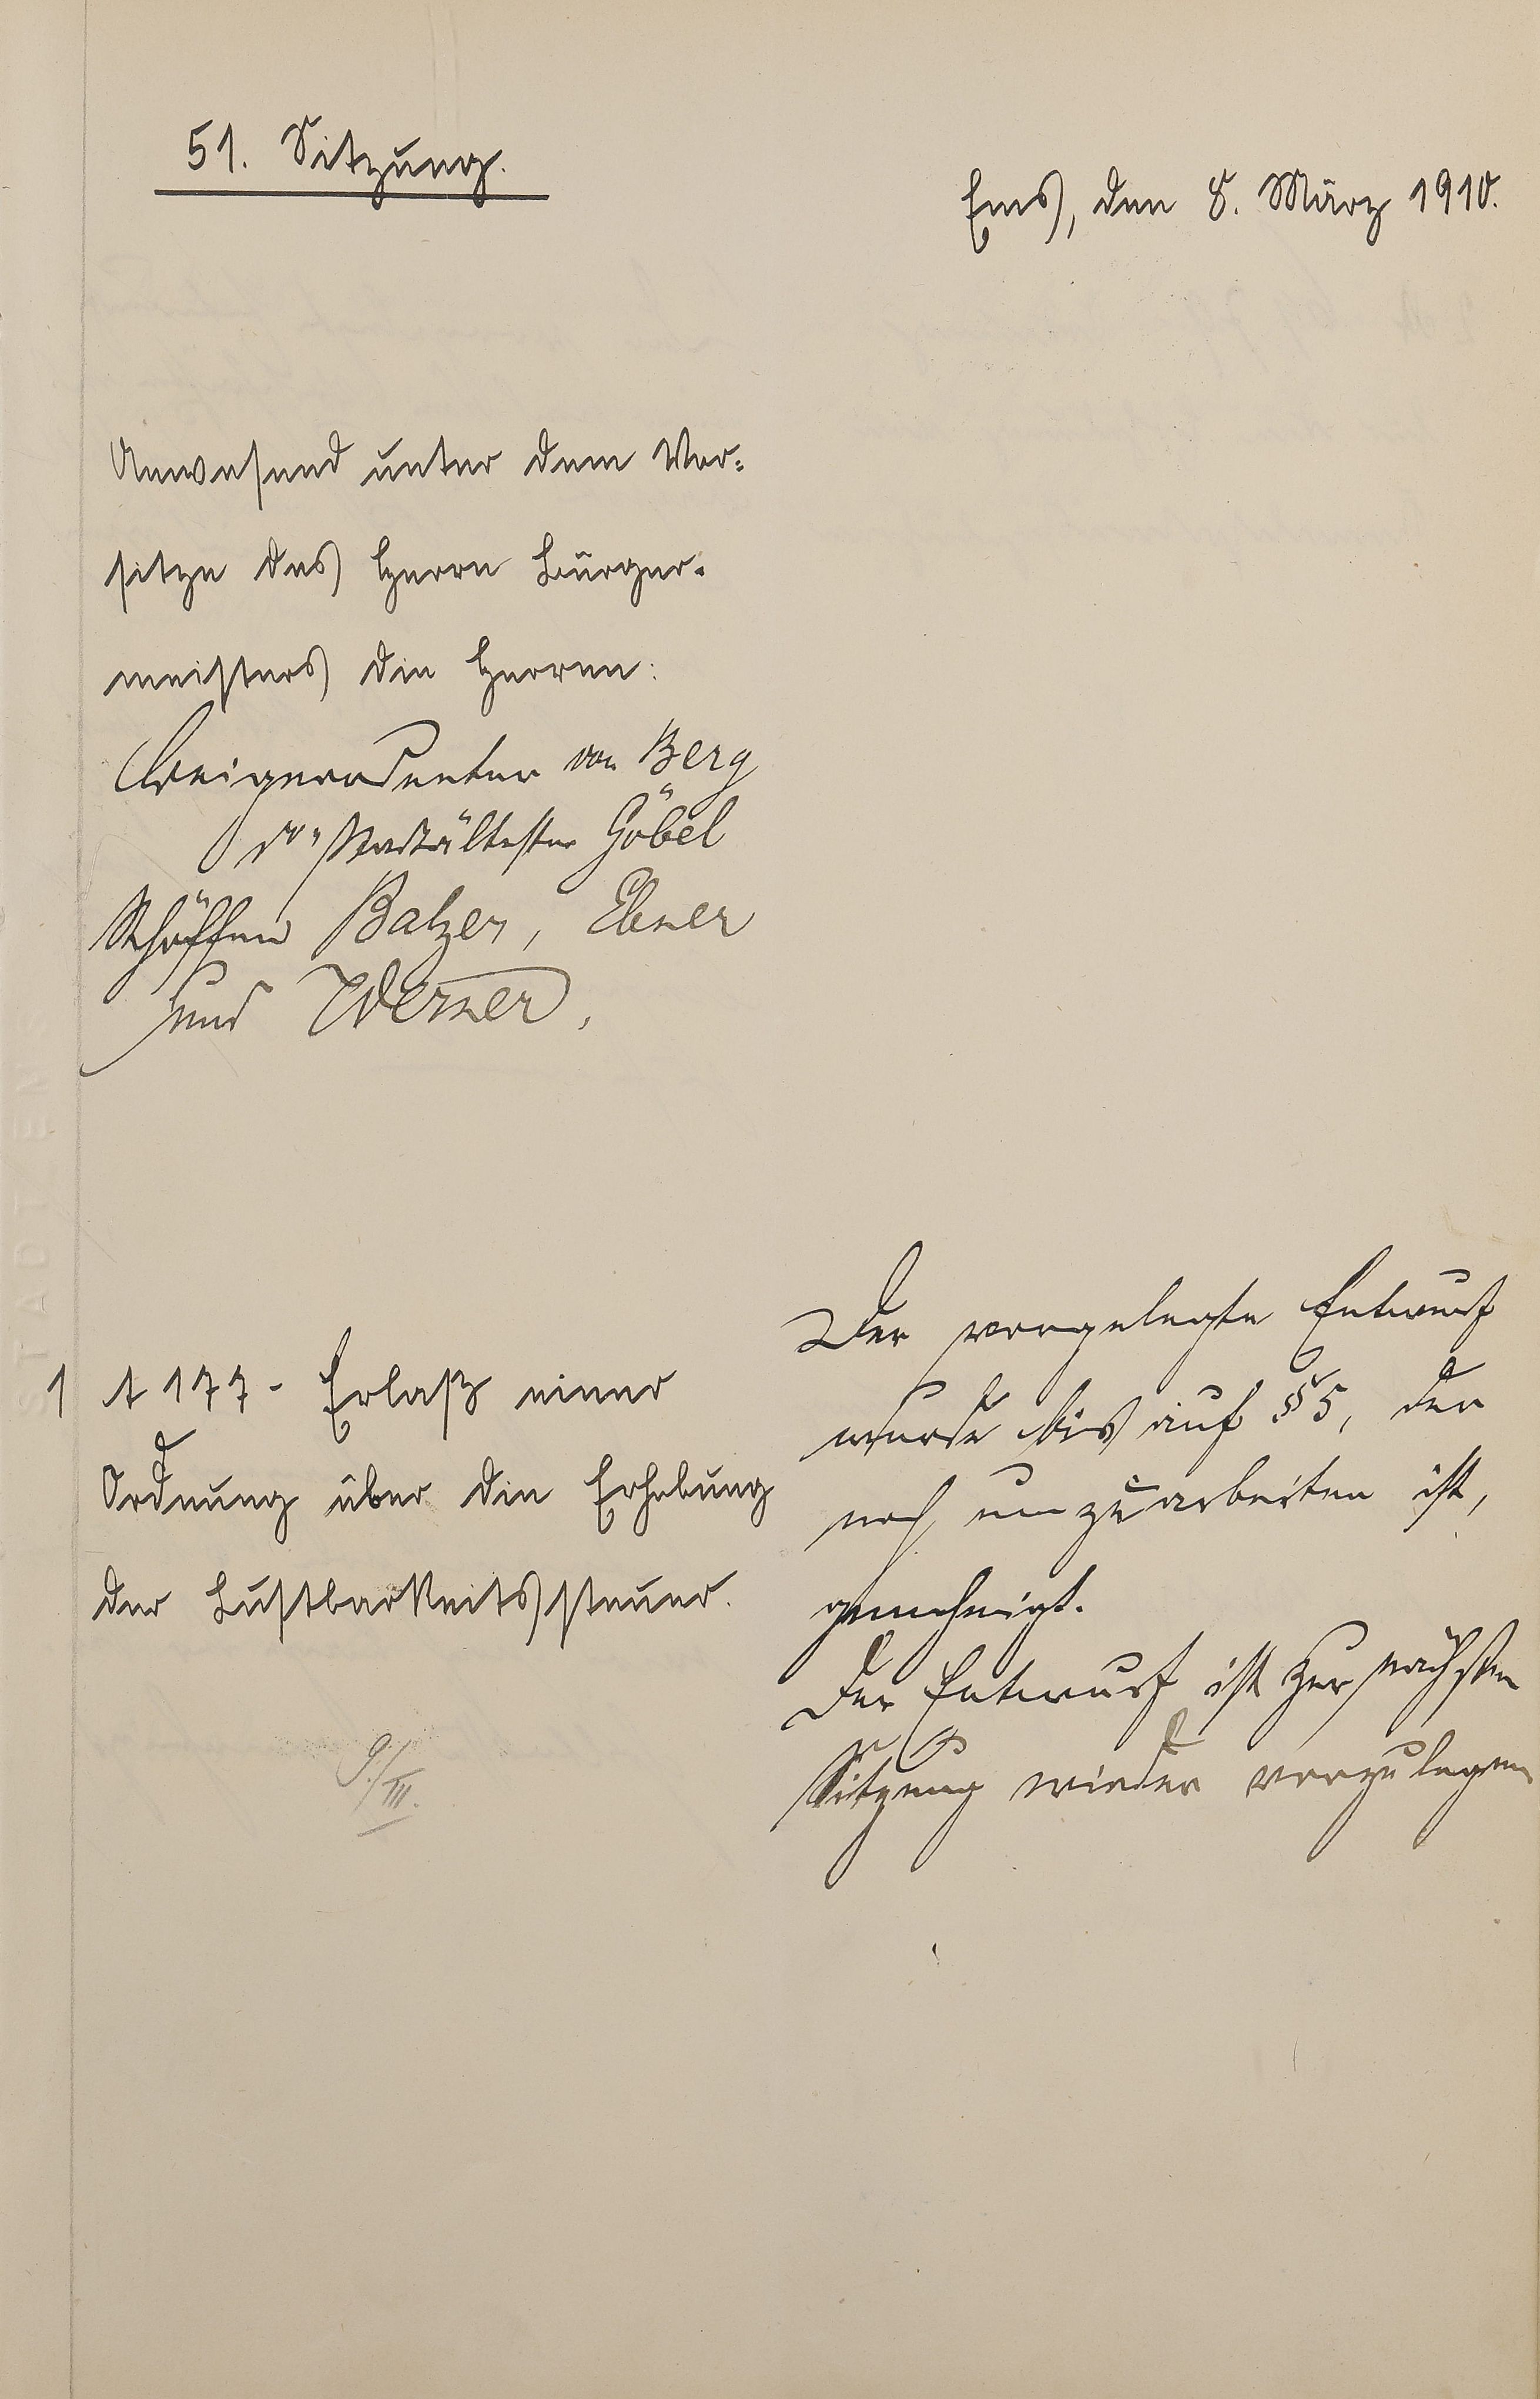 51. Sitzung.
Ems, den 8. März 1910.
Anwesend unter dem Vor-
sitze des Herrn Bürger-
meisters die Herren:
Beigeordneter von Berg
Magistratsältester Göbel
Schöffen Balzer, Ebner
und Werner.
1 A 177 - Erlaß einer
Ordnung über die Erhebung
der Lustbarkeitssteuer.
9./III.
Der vorgelegte Entwurf
wurde bis auf § 5, der
noch umzuarbeiten ist,
genehmigt.
Der Entwurf ist zur nächsten
Sitzung wieder vorzulegen
STADT EMS